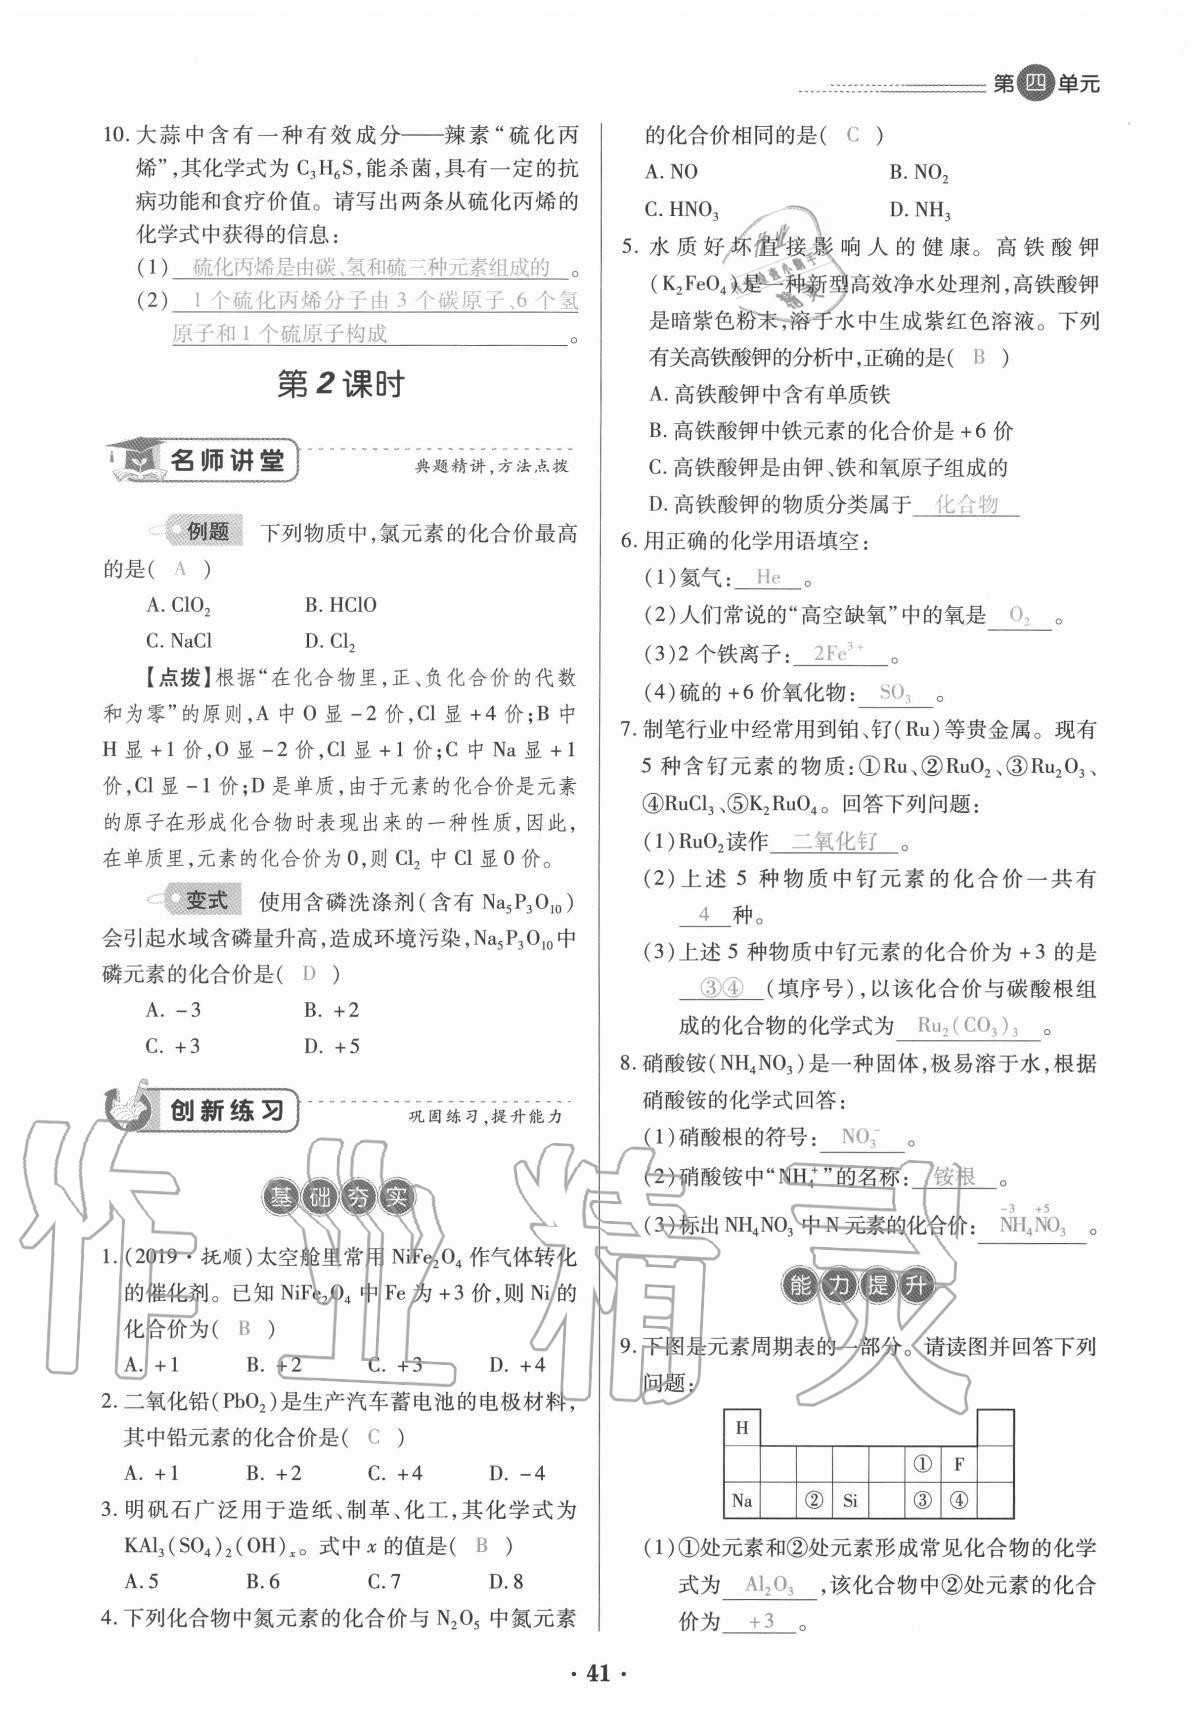 第四单元
10. 大蒜中含有一种有效成分——辣素“硫化丙
烯”,其化学式为 C₃H₆S,能杀菌,具有一定的抗
病功能和食疗价值。请写出两条从硫化丙烯的
化学式中获得的信息:
(1) 硫化丙烯是由碳、氢和硫三种元素组成的 。
(2) 1 个硫化丙烯分子由 3 个碳原子、6 个氢
原子和 1 个硫原子构成 。
第 2 课时
名师讲堂 典题精讲,方法点拨
例题 下列物质中,氯元素的化合价最高
的是( A )
A. ClO₂ B. HClO
C. NaCl D. Cl₂
【点拨】根据“在化合物里,正、负化合价的代数
和为零”的原则,A 中 O 显 -2 价,Cl 显 +4 价;B 中
H 显 +1 价,O 显 -2 价,Cl 显 +1 价;C 中 Na 显 +1
价,Cl 显 -1 价;D 是单质,由于元素的化合价是元素
的原子在形成化合物时表现出来的一种性质,因此,
在单质里,元素的化合价为 0,则 Cl₂ 中 Cl 显 0 价。
变式 使用含磷洗涤剂(含有 Na₅P₃O₁₀)
会引起水域含磷量升高,造成环境污染,Na₅P₃O₁₀中
磷元素的化合价是( D )
A. -3 B. +2
C. +3 D. +5
创新练习 巩固练习,提升能力
基础夯实
1. (2019·抚顺)太空舱里常用 NiFe₂O₄ 作气体转化
的催化剂。已知 NiFe₂O₄ 中 Fe 为 +3 价,则 Ni 的
化合价为( B )
A. +1 B. +2 C. +3 D. +4
2. 二氧化铅(PbO₂)是生产汽车蓄电池的电极材料,
其中铅元素的化合价是( C )
A. +1 B. +2 C. +4 D. -4
3. 明矾石广泛用于造纸、制革、化工,其化学式为
KAl₃(SO₄)₂(OH)ₓ。式中 x 的值是( B )
A. 5 B. 6 C. 7 D. 8
4. 下列化合物中氮元素的化合价与 N₂O₅ 中氮元素
的化合价相同的是( C )
A. NO B. NO₂
C. HNO₃ D. NH₃
5. 水质好坏直接影响人的健康。高铁酸钾
(K₂FeO₄)是一种新型高效净水处理剂,高铁酸钾
是暗紫色粉末,溶于水中生成紫红色溶液。下列
有关高铁酸钾的分析中,正确的是( B )
A. 高铁酸钾中含有单质铁
B. 高铁酸钾中铁元素的化合价是 +6 价
C. 高铁酸钾是由钾、铁和氧原子组成的
D. 高铁酸钾的物质分类属于 化合物
6. 用正确的化学用语填空:
(1)氦气: He 。
(2)人们常说的“高空缺氧”中的氧是 O₂ 。
(3)2 个铁离子: 2Fe³⁺ 。
(4)硫的 +6 价氧化物: SO₃ 。
7. 制笔行业中经常用到铂、钌(Ru)等贵金属。现有
5 种含钌元素的物质:①Ru、②RuO₂、③Ru₂O₃、
④RuCl₃、⑤K₂RuO₄。回答下列问题:
(1)RuO₂读作 二氧化钌 。
(2)上述 5 种物质中钌元素的化合价一共有
4 种。
(3)上述 5 种物质中钌元素的化合价为 +3 的是
③④ (填序号),以该化合价与碳酸根组
成的化合物的化学式为 Ru₂(CO₃)₃ 。
8. 硝酸铵(NH₄NO₃)是一种固体,极易溶于水,根据
硝酸铵的化学式回答:
(1)硝酸根的符号: NO₃⁻ 。
(2)硝酸铵中“NH₄⁺”的名称: 铵根 。
-3 +5
(3)标出 NH₄NO₃ 中 N 元素的化合价: NH₄NO₃ 。
能力提升
9. 下图是元素周期表的一部分。请读图并回答下列
问题:
H
① F
Na ② Si ③ ④
(1)①处元素和②处元素形成常见化合物的化学
式为 Al₂O₃ ,该化合物中②处元素的化合
价为 +3 。
· 41 ·
作业精灵